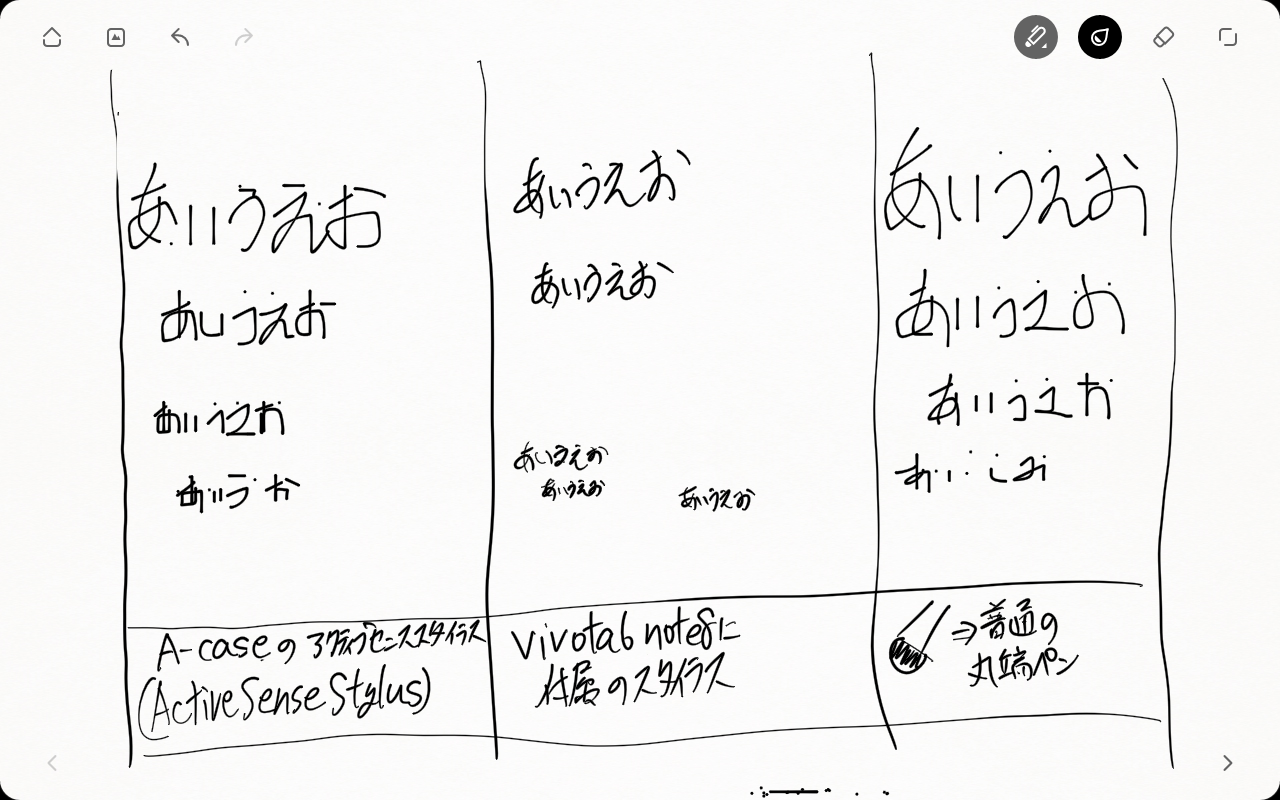 あいうえお
あいうえお
あいうえお
あいう お
A-caseの アクティブセンススタイラス
(Active Sense Stylus)
あいうえお
あいうえお
あいうえお
あいうえお
あいうえお
Vivotab note8に
付属のスタイラス
あいうえお
あいうえお
あいうえお
⇒普通の
丸端ペン